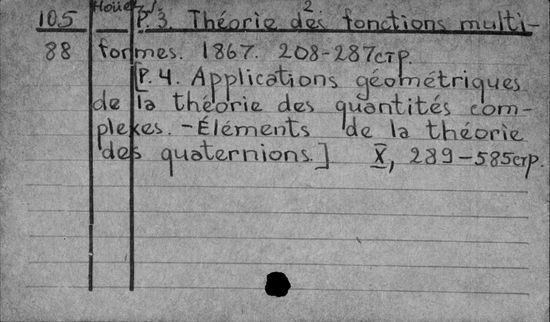 Houël 2.
105 P.3. Théorie des fonctions multi-
88 formes. 1867. 208-287стр.
[P. 4. Applications géométriques
de la théorie des quantités com-
plexes. - Éléments de la théorie
des quaternions.] X, 289-585стр.